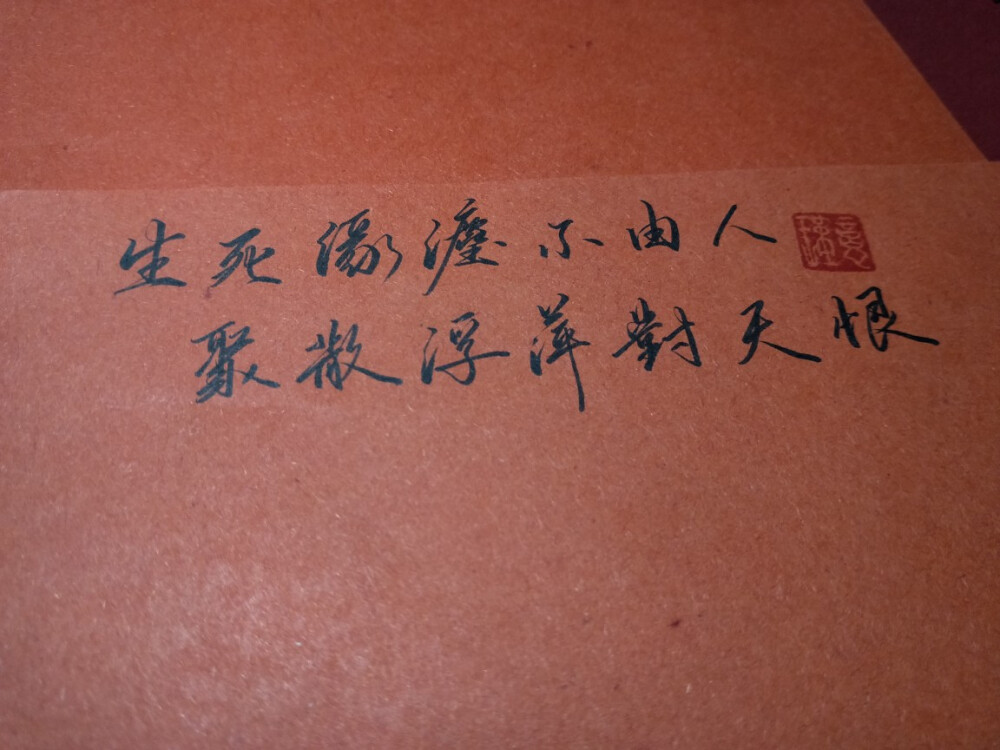 生死緣瀍不由人
聚散浮萍對天恨